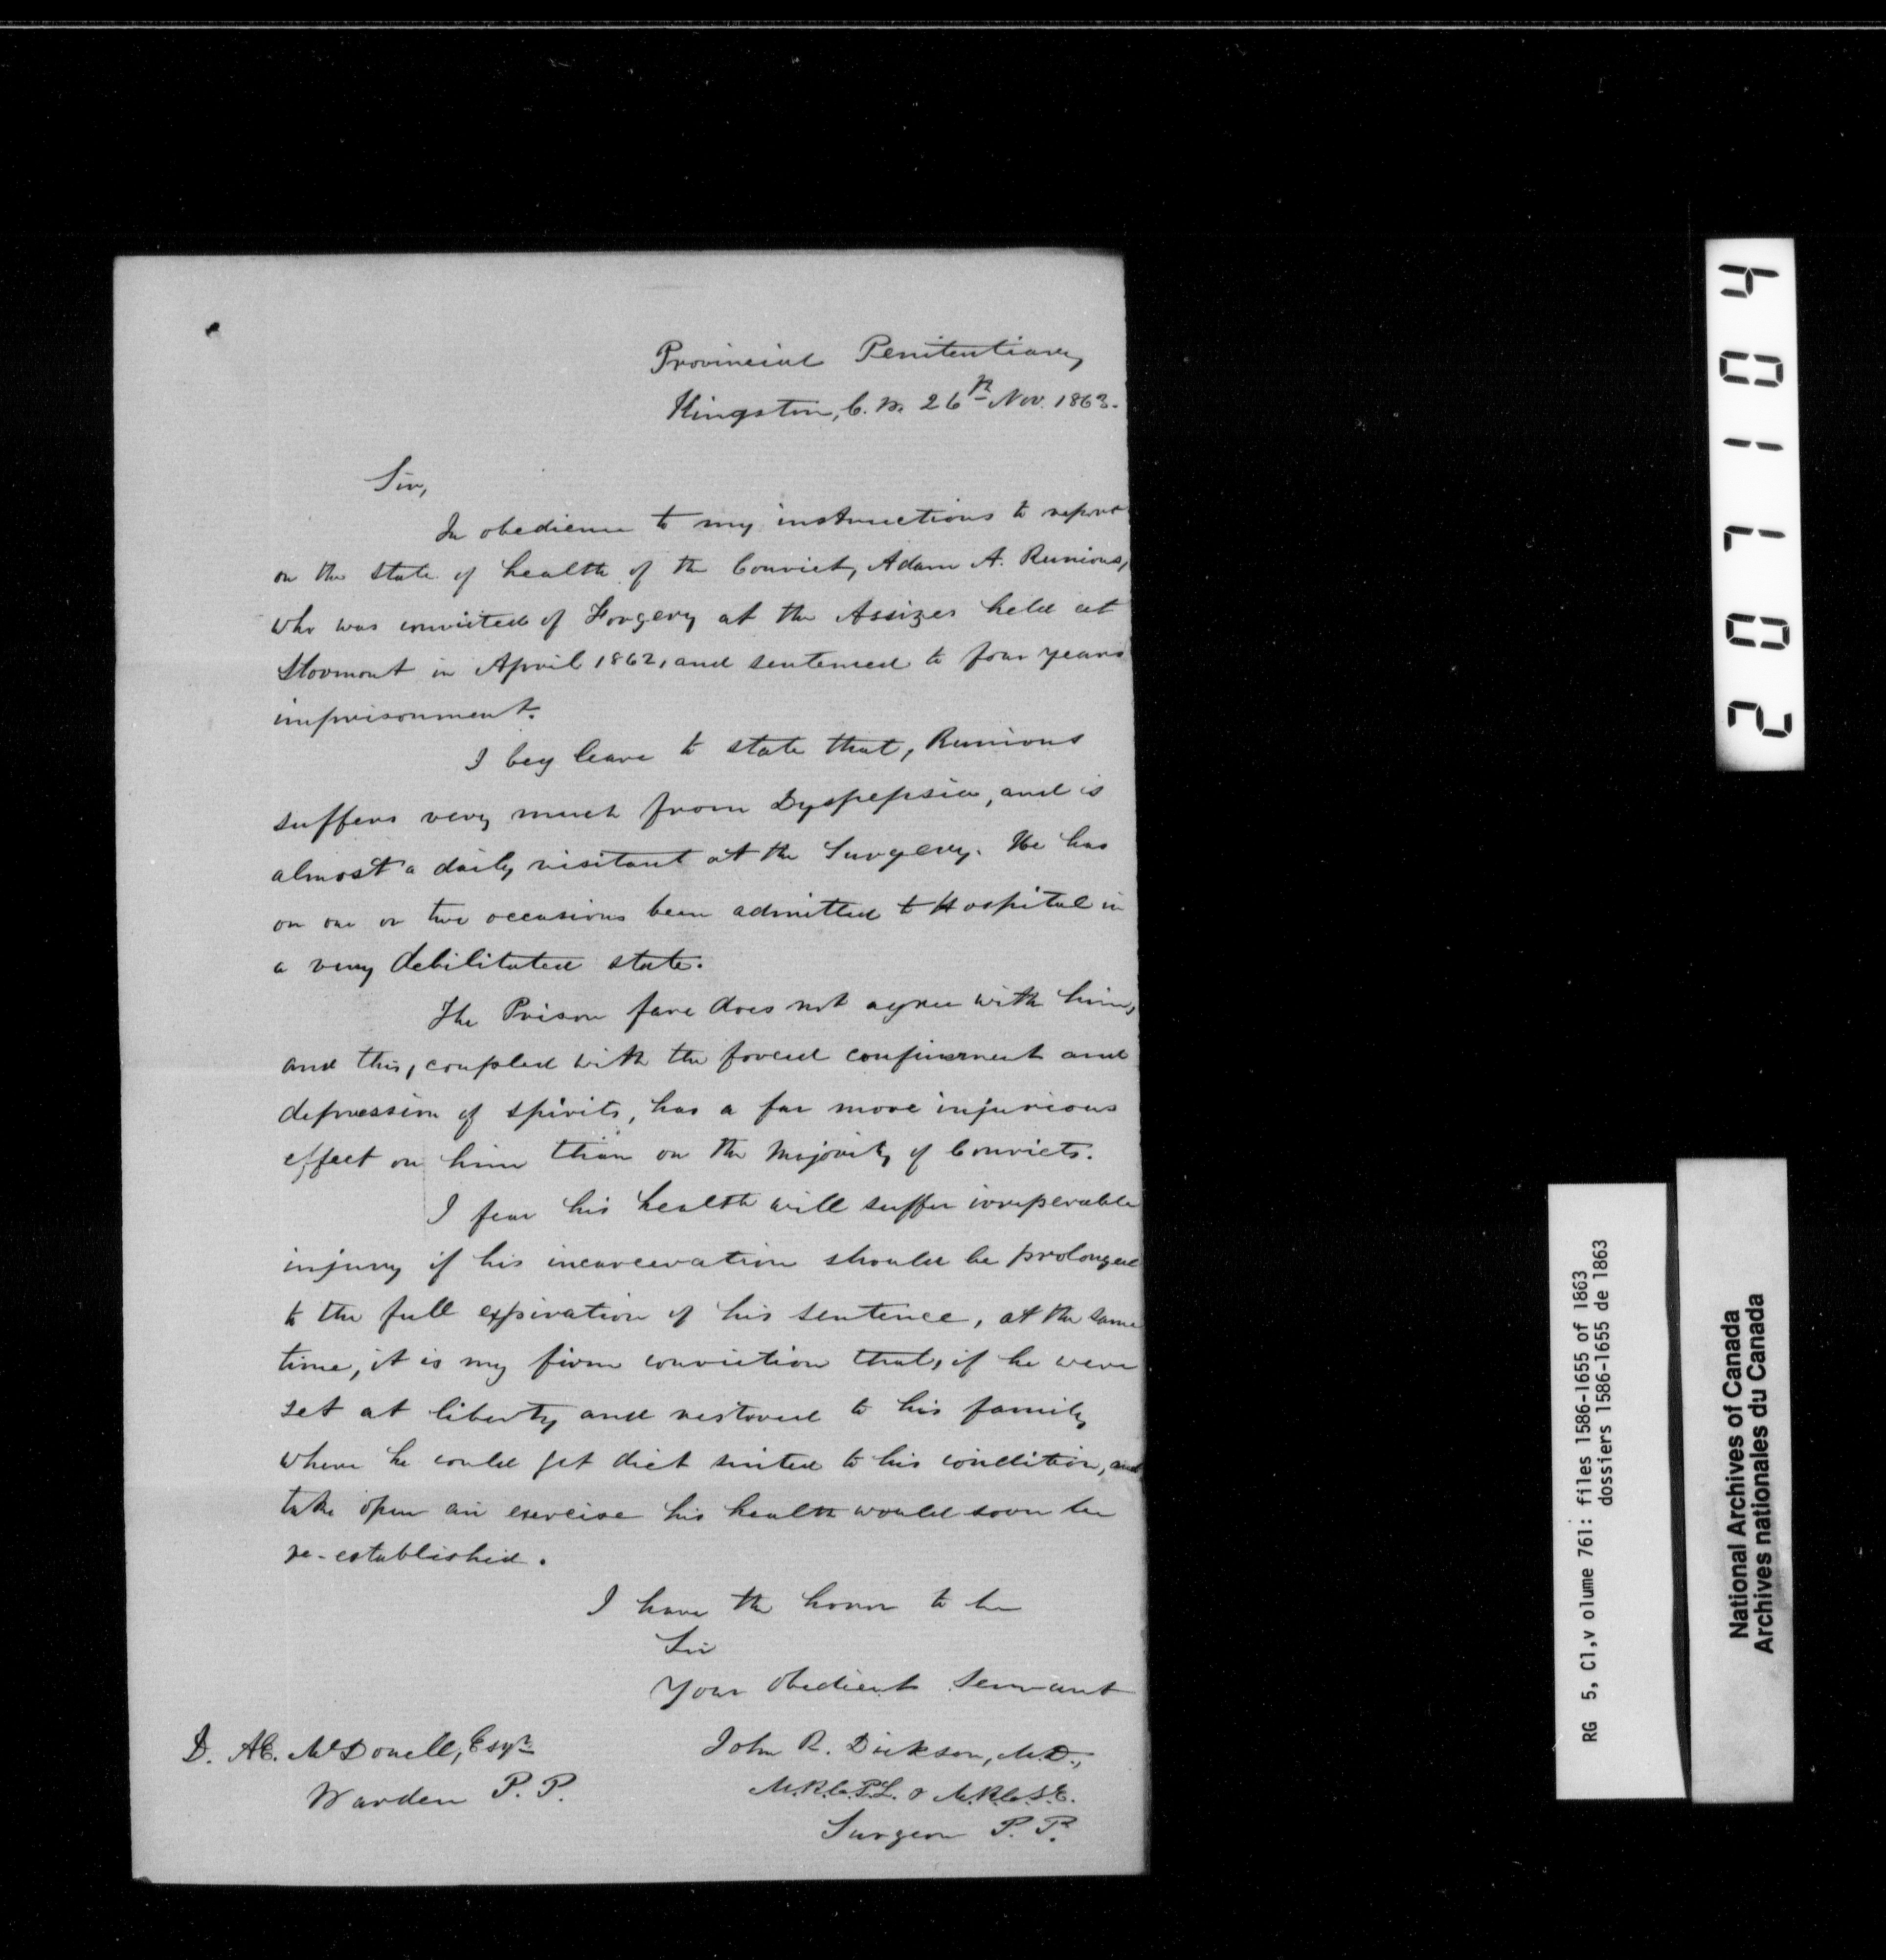 Provincial Penitentiary
Kingston, C. W. 26th Nov. 1863.
Sir,
In obedience to my instructions to report
on the state of health of the Convict, Adam A. Runions,
who was convicted of Forgery at the Assizes held at
Stormont in April 1862, and sentenced to four years
imprisonment.
I beg leave to state that, Runions
suffers very much from Dyspepsia, and is
almost a daily visitant at the Surgery. He has
on one or two occasions been admitted to Hospital in
a very debilitated state.
The Prison fare does not agree with him,
and this, coupled with the forced confinement and
depression of spirits, has a far more injurious
effect on him than on the majority of Convicts.
I fear his health will suffer irreperable
injury if his incarceration should be prolonged
to the full expiration of his sentence, at the same
time, it is my firm conviction that, if he were
set at liberty and restored to his family
where he could get diet suited to his condition, and
take open air exercise his health would soon be
re-established.
I have the honor to be
Sir
Your obedient Servant
John R. Dickson, M.D.,
M.R.C.P.L. & M.R.C.S.E.
Surgeon P. P.
D. Æ. McDonell, Esqr.
Warden P. P.
2071104
RG 5, C1,v olume 761: files 1586-1655 of 1863
dossiers 1586-1655 de 1863
National Archives of Canada
Archives nationales du Canada